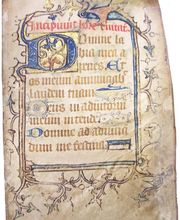 Incipiunt hore
Domine la
bia mea a
peries. Et
os meum annunciab
laudem tuam
Deus in adiutori
meum intende
Domine ad adiuuan
dum me festina